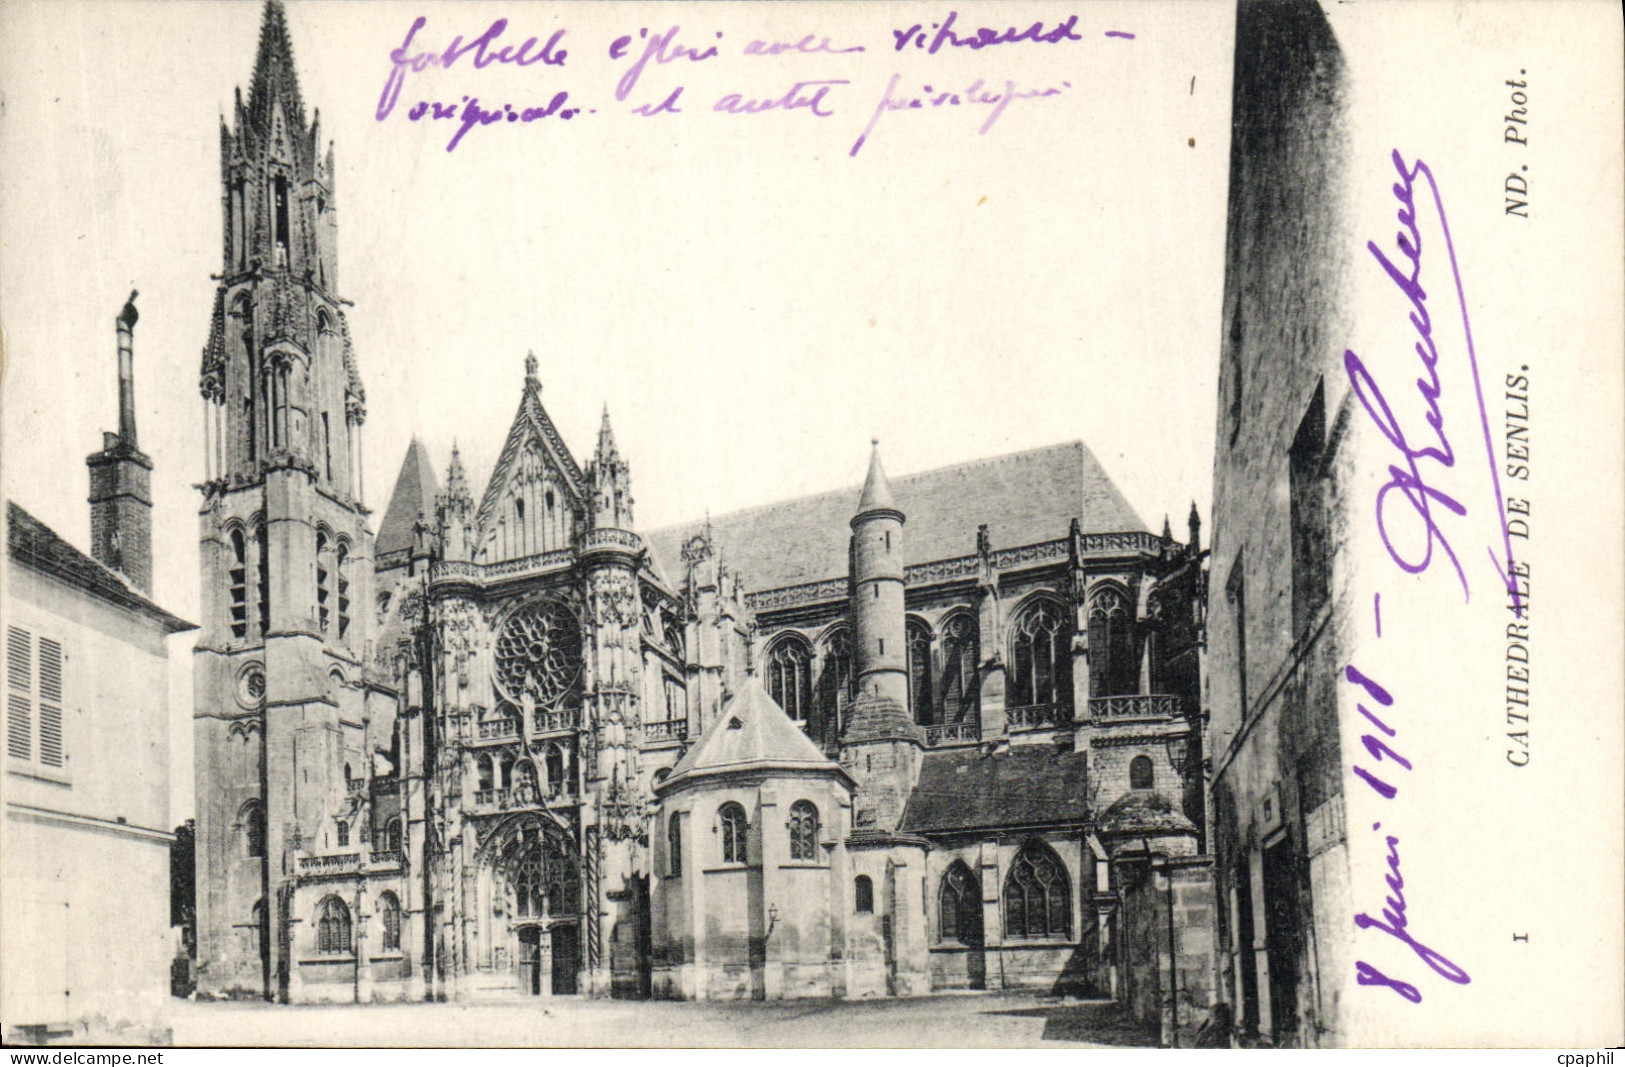 fort belle église avec vitraux
originals. et autel privilégié
8 Juin 1918 -
1 CATHEDRALE DE SENLIS. ND. Phot.
www.delcampe.net
cpaphil